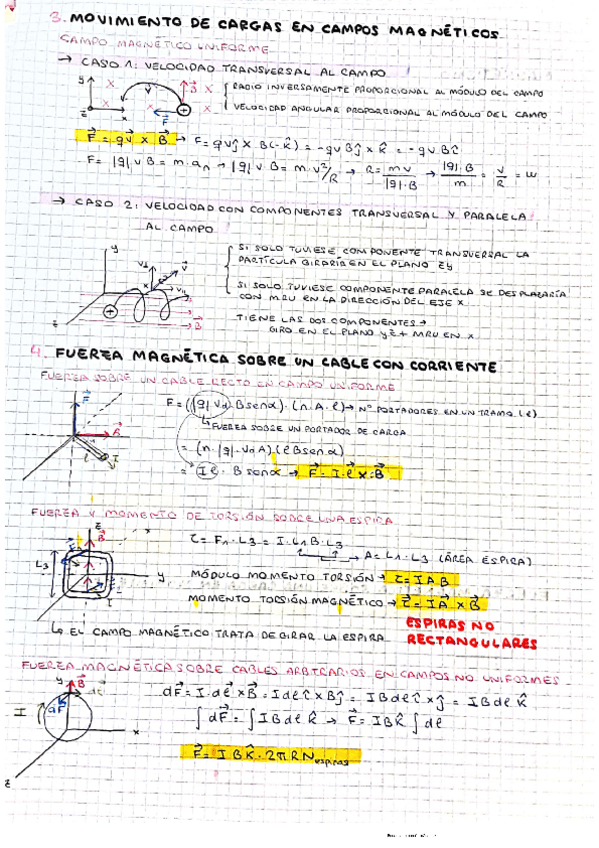 3. MOVIMIENTO DE CARGAS EN CAMPOS MAGNÉTICOS
CAMPO MAGNÉTICO UNIFORME
→ CASO 1: VELOCIDAD TRANSVERSAL AL CAMPO
RADIO INVERSAMENTE PROPORCIONAL AL MÓDULO DEL CAMPO
VELOCIDAD ANGULAR PROPORCIONAL AL MÓDULO DEL CAMPO
F⃗ = qv⃗ × B⃗ → F = qvĵ × B(-k̂) = -qvBĵ × k̂ = -qvBî
F = |q| v B = m·aₙ → |q| v B = m v²/R → R = mv/|q|·B → |q|·B/m = v/R = w
→ CASO 2: VELOCIDAD CON COMPONENTES TRANSVERSAL Y PARALELA
AL CAMPO
SI SOLO TUVIESE COMPONENTE TRANSVERSAL LA
PARTÍCULA GIRARÍA EN EL PLANO ZY
SI SOLO TUVIESE COMPONENTE PARALELA SE DESPLAZARÍA
CON MRU EN LA DIRECCIÓN DEL EJE X
TIENE LAS DOS COMPONENTES →
GIRO EN EL PLANO YZ + MRU EN X
4. FUERZA MAGNÉTICA SOBRE UN CABLE CON CORRIENTE
FUERZA SOBRE UN CABLE RECTO EN CAMPO UNIFORME
F = (|q| Vd·B senα)·(n·A·ℓ) → Nº PORTADORES EN UN TRAMO (ℓ)
↳ FUERZA SOBRE UN PORTADOR DE CARGA
= (n·|q|·Vd A)(ℓ B senα)
= Iℓ·B senα → F⃗ = I·ℓ⃗ × B⃗
FUERZA Y MOMENTO DE TORSIÓN SOBRE UNA ESPIRA
τ = F₁·L₃ = I·L₁B·L₃
→ A = L₁·L₃ (ÁREA ESPIRA)
L₃
MÓDULO MOMENTO TORSIÓN → τ = IAB
MOMENTO TORSIÓN MAGNÉTICO → τ⃗ = IA⃗ × B⃗
ESPIRAS NO
RECTANGULARES
↳ EL CAMPO MAGNÉTICO TRATA DE GIRAR LA ESPIRA
FUERZA MAGNÉTICA SOBRE CABLES ARBITRARIOS EN CAMPOS NO UNIFORMES
dF⃗ = I·dℓ⃗ × B⃗ = Idℓî × Bĵ = IBdℓ î × ĵ = IBdℓ k̂
∫dF⃗ = ∫IBdℓ k̂ → F⃗ = IBk̂ ∫dℓ
F⃗ = I B k̂·2πRN espiras